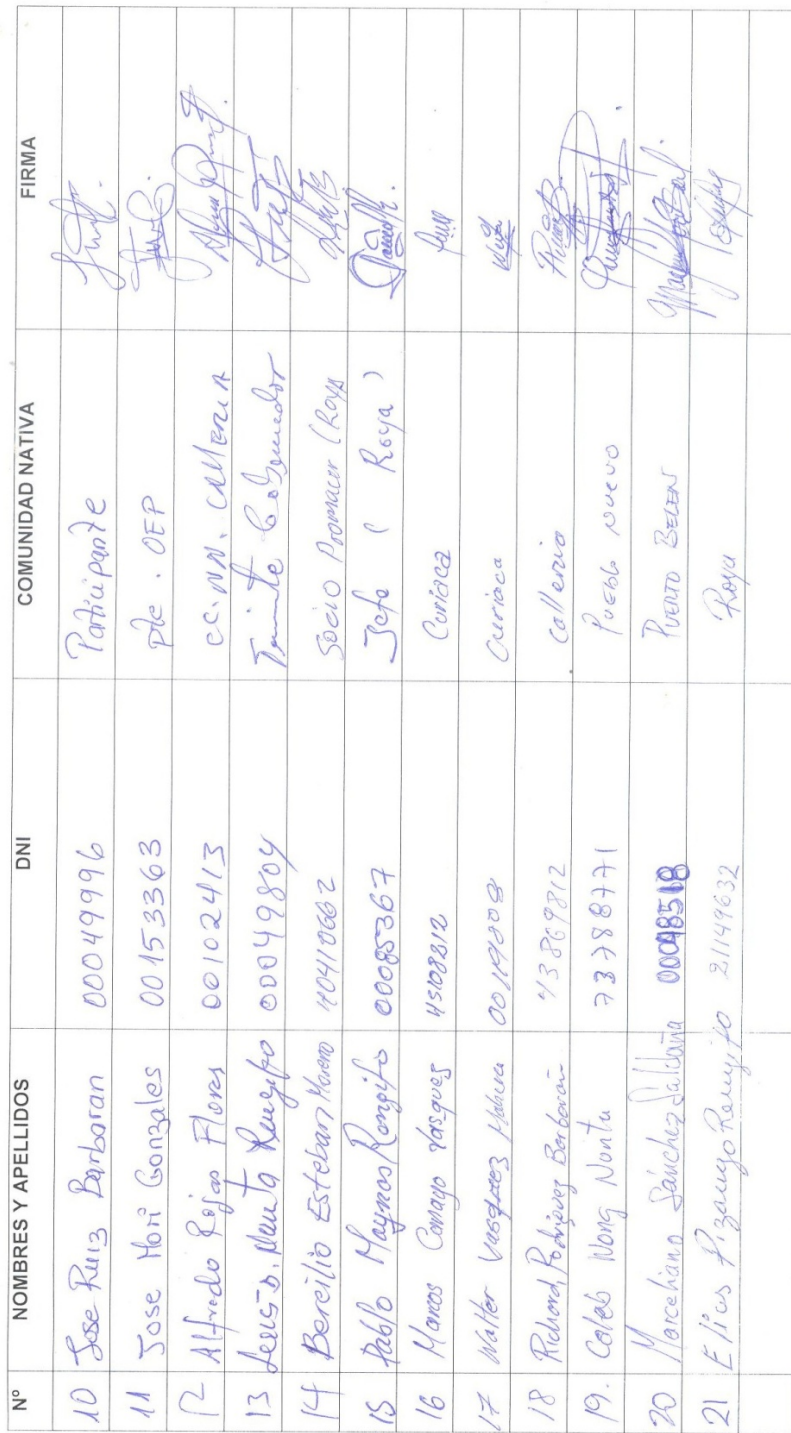 Nº NOMBRES Y APELLIDOS DNI COMUNIDAD NATIVA FIRMA
10 Jose Ruiz Barboran 00049996 Participante
11 Jose Mori Gonzales 00153363 pte. OEP
12 Alfredo Rojas Flores 00102413 CC.NN. Calleria
13 Jesus D. Nunta Rengifo 00049804
14 Bercilio Esteban Moreno 40410662 Socio Promacer (Roya
15 Pablo Maynas Rongifo 00085367 Jefe ( Roya )
16 Marcos Camayo Vasquez 45108812 Curiaca
17 Walter Vasquez Curiaca
18 Richard Rodriguez Barboran 43869812 Calleria
19. Caleb Wong Nunta 73788771 Pueblo nuevo
20 Marceliano Sánchez Saldaña 00098518 Puerto Belen
21 Elias Pizango Rengifo 21149632 Roya